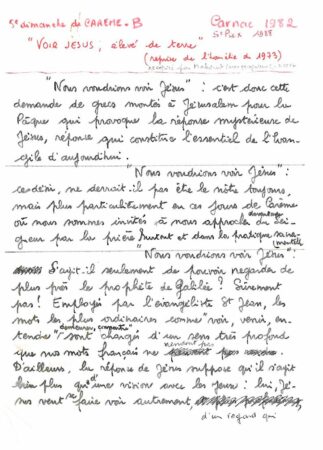 5e dimanche de CARÊME - B
Carnac 1982
St Pix 1988
"VOIR JESUS, élevé de terre"
(reprise de l'homélie de 1973)
"Nous voudrions voir Jésus" : c'est donc cette
demande de grecs montés à Jérusalem pour la
Pâque qui provoque la réponse mystérieuse de
Jésus, réponse qui constitue l'essentiel de l'évan-
gile d'aujourd'hui.
"Nous voudrions voir Jésus" :
ce désir, ne devrait-il pas être le nôtre toujours,
mais plus particulièrement en ces jours de Carême
où nous sommes invités à nous approcher davantage du Sei-
gneur par la prière surtout et dans la pratique sacra-
mentelle
"Nous voudrions voir Jésus" :
S'agit-il seulement de pouvoir regarder de
plus près le prophète de Galilée ? Sûrement
pas ! Employés par l'évangéliste St Jean, les
mots les plus ordinaires comme "voir, venir, en-
tendre, demeurer, " sont chargés d'un sens très profond
que nos mots français ne rendent pas
D'ailleurs, la réponse de Jésus suppose qu'il s'agit
bien plus que d'une vision avec les yeux : lui, Jé-
sus veut se faire voir autrement,
d'un regard qui